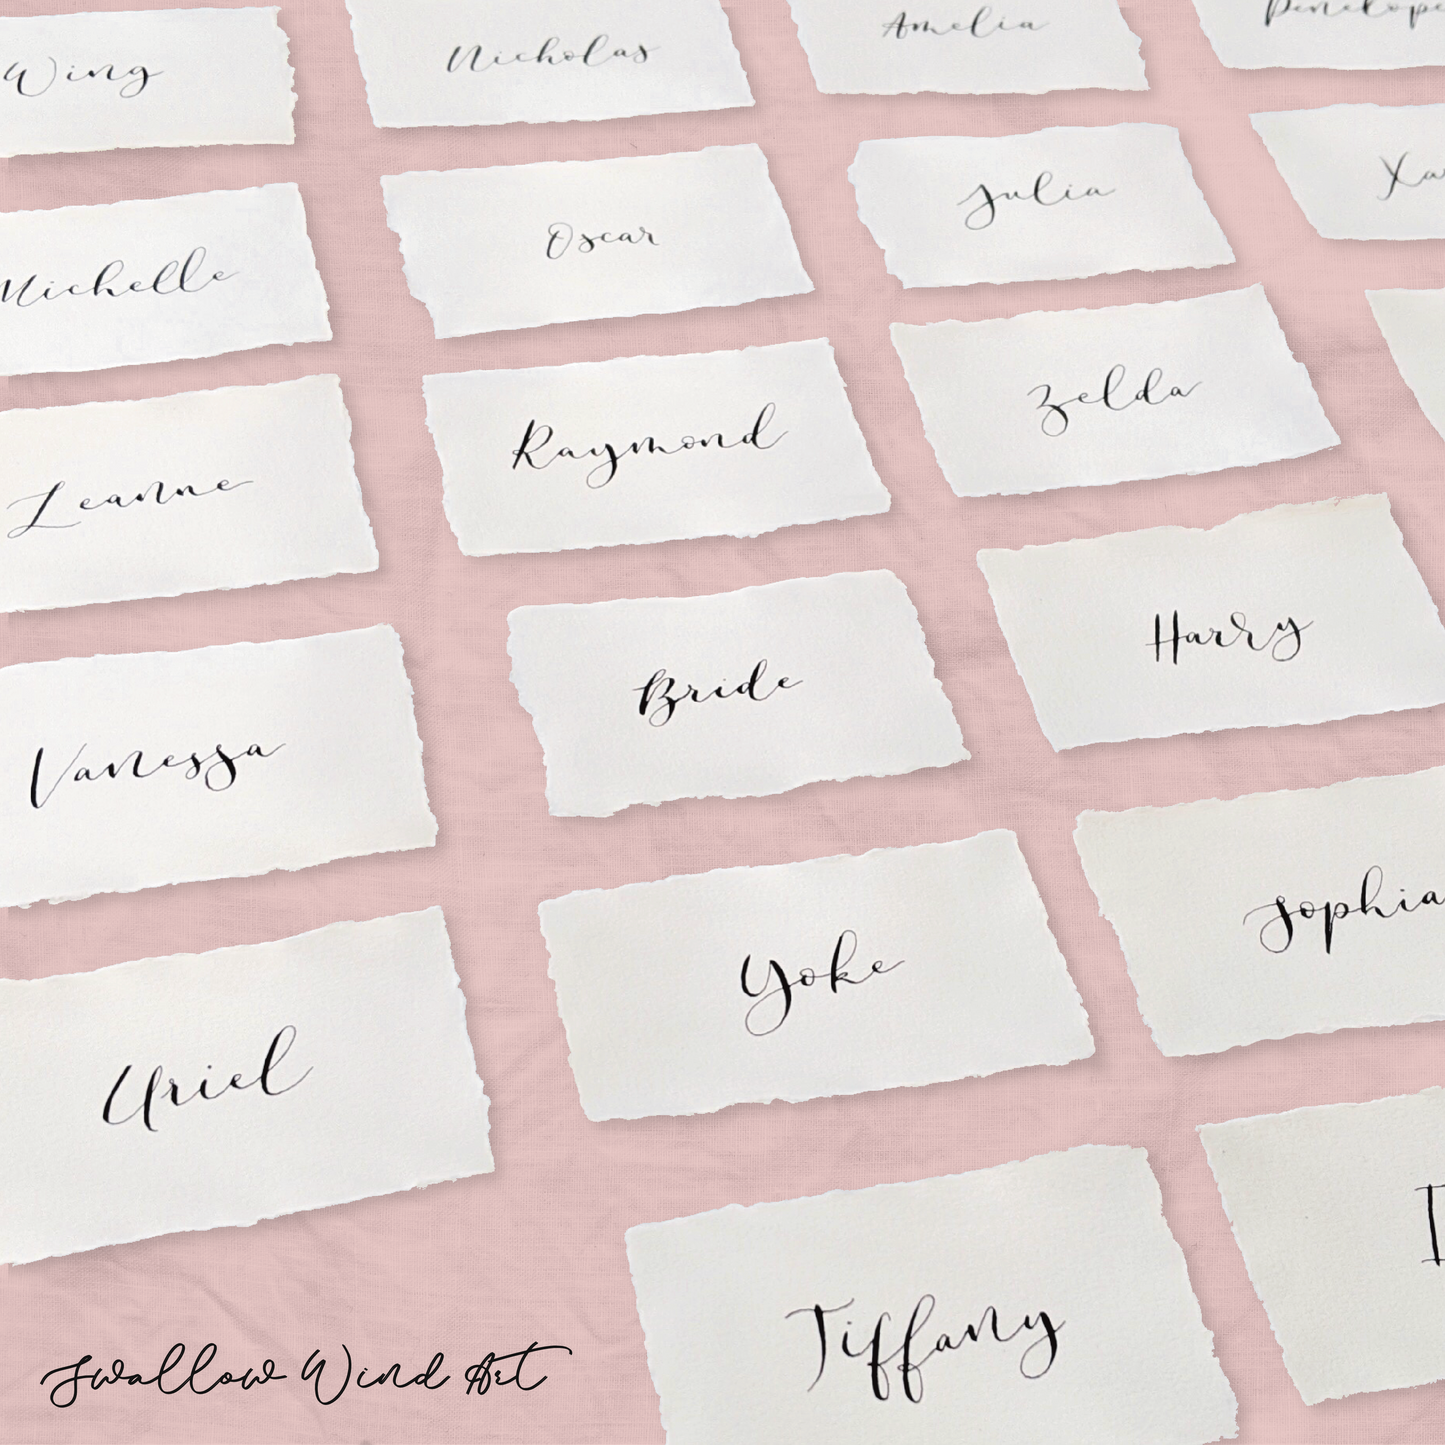 Wing
Nicholas
Amelia
Penelope
Michelle
Oscar
Julia
Leanne
Raymond
Zelda
Vanessa
Bride
Harry
Uriel
Yoke
Sophia
Tiffany
Swallow Wind Art